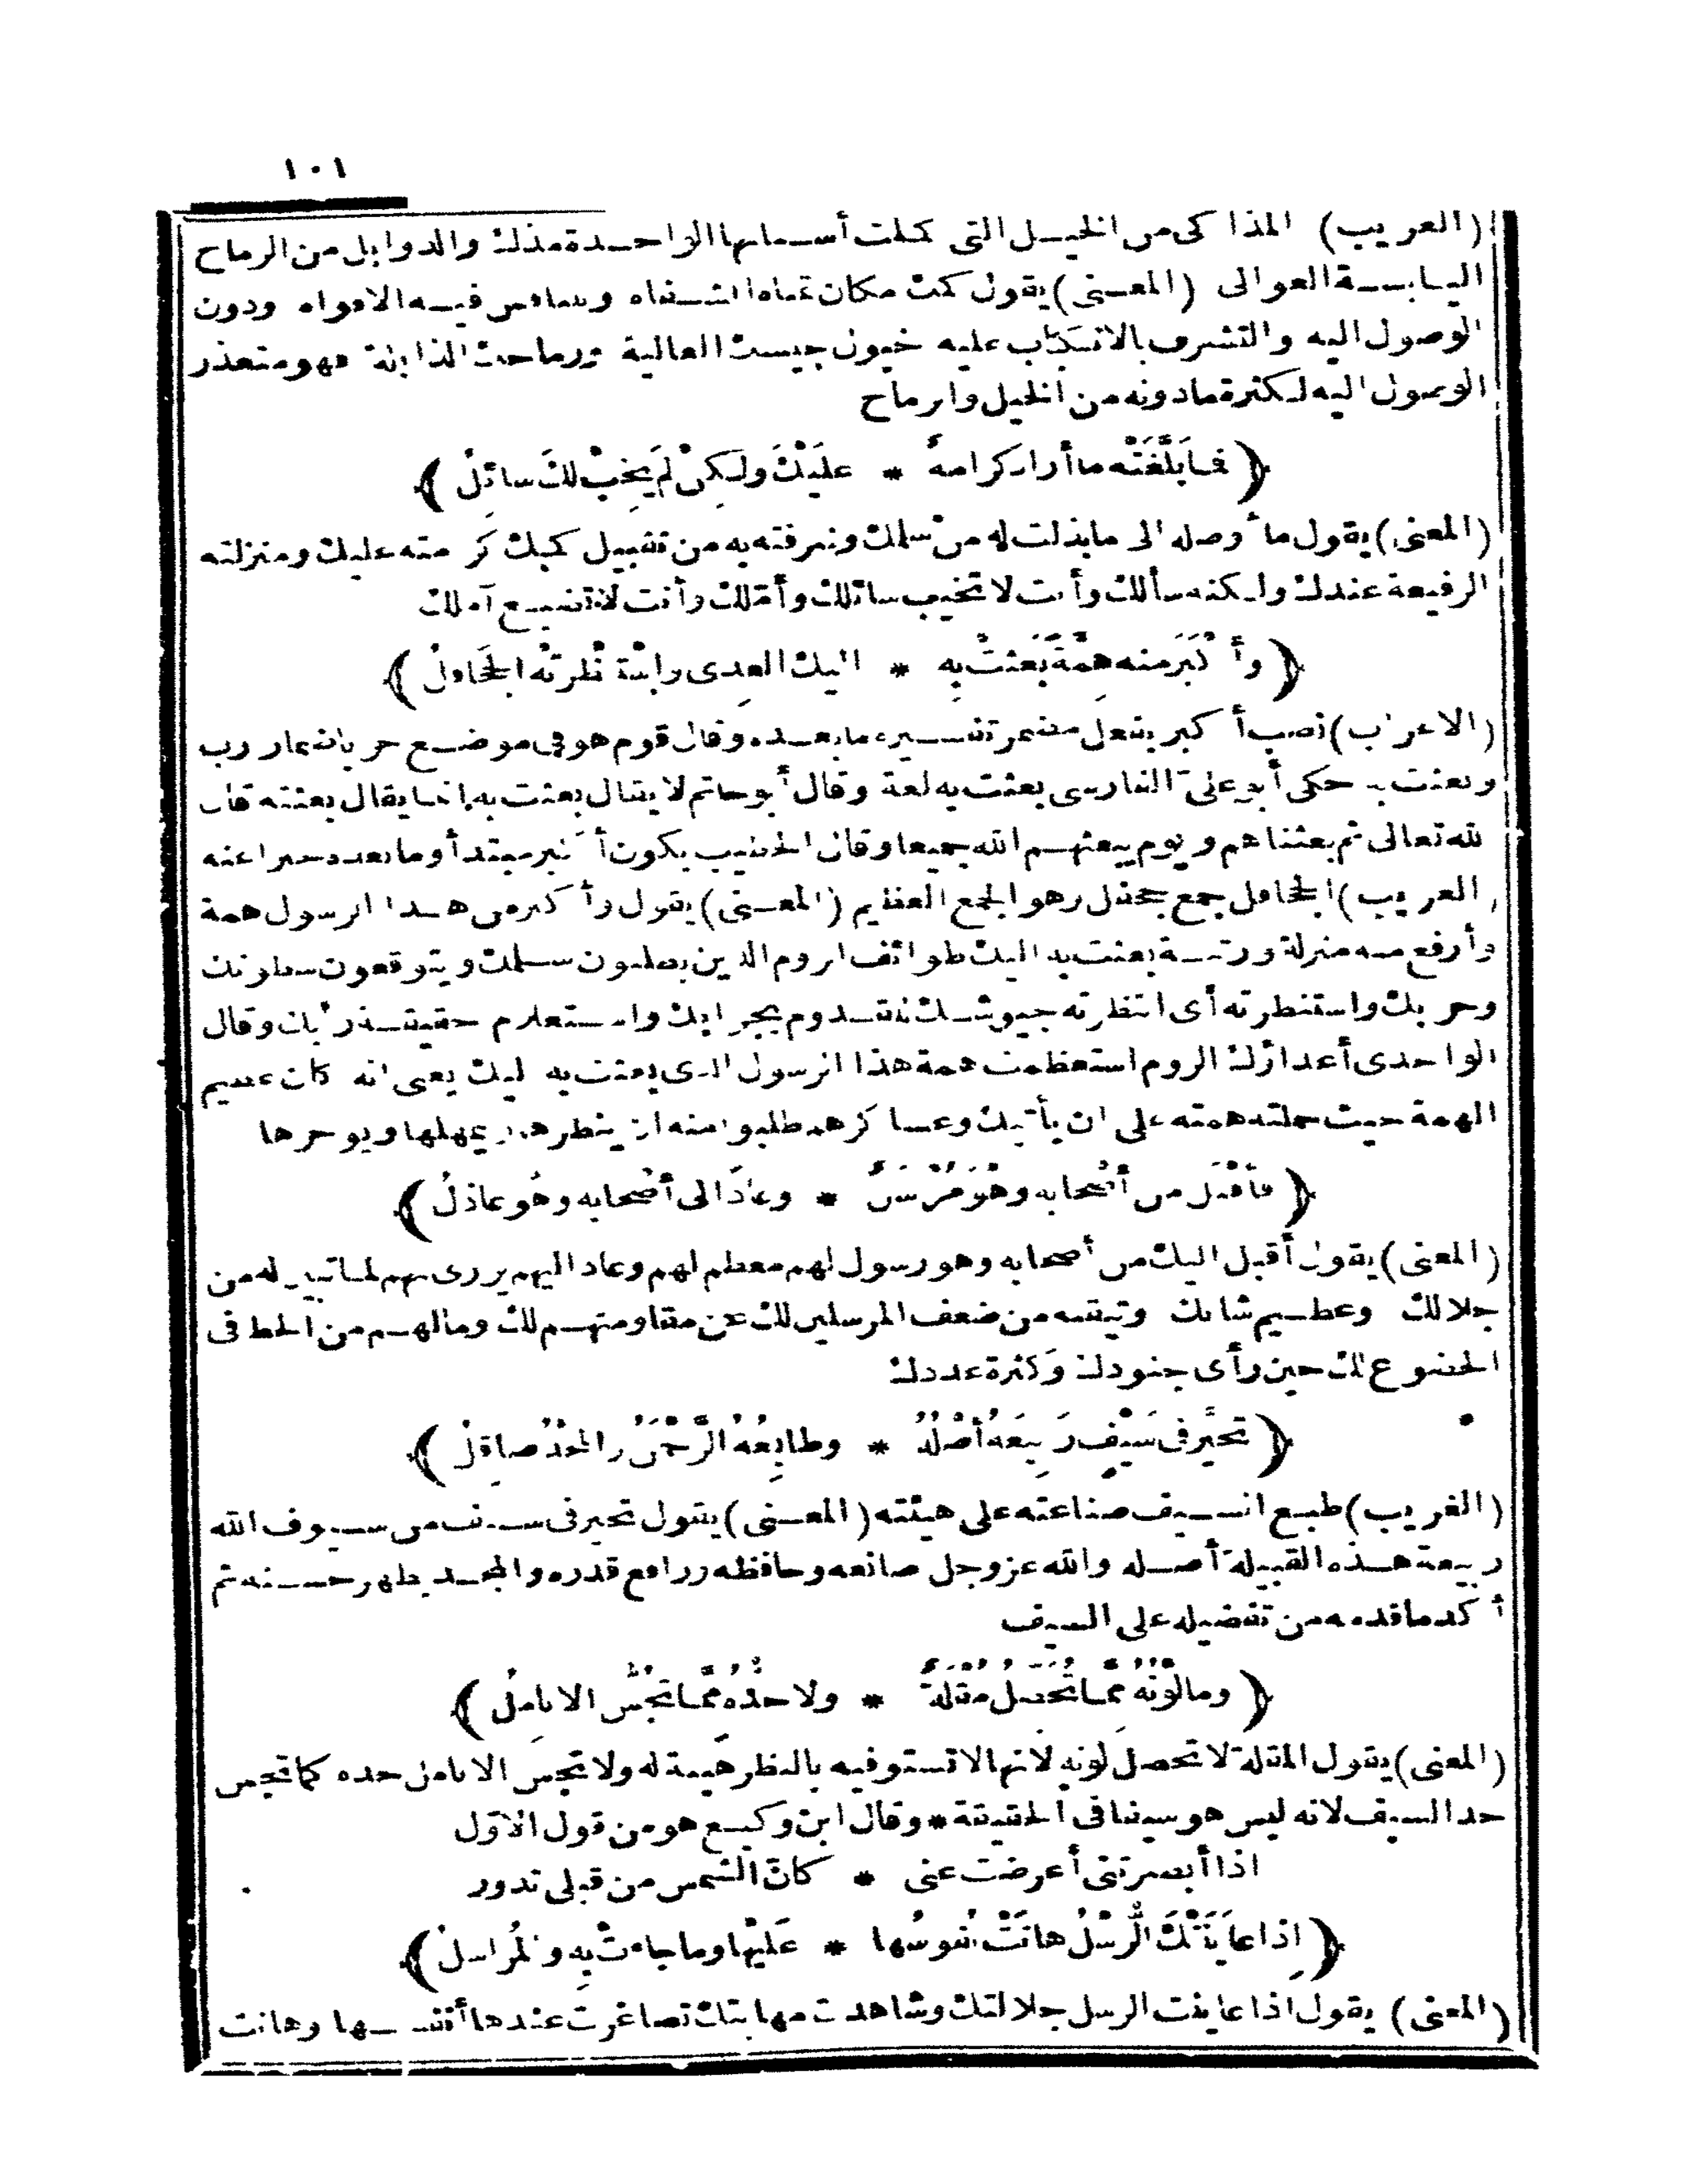 ١٠١
(الغريب) المذاكى من الخيل التى كملت أسنانها الواحدة مذك والذوابل من الرماح
اليابسة العوالى (المعنى) يقول كمك مكان تمناه الشفاه وتنافس فيه الافواه ودون
الوصول اليه والتشرف بالانكباب عليه خيول جيشك العالية ورماحك الذابلة فهو متعذر
الوصول اليه لكثرة مادونه من الخيل والرماح
﴿فما بلَّغَتْه ما أراد كرامةٌ * عليْكَ ولكِنْ لَم يَخِبْ لكَ سائلُ﴾
(المعنى) يقول ما أوصله الى ما بذلت له من سلمك وشرفته به من تقبيل كمك كرامته عليك ومنزلته
الرفيعة عندك ولكنه سألك وأنت لا تخيب سائلك وأمّلك وأنت لا تضيع آملك
﴿وأكْبَرَ منه هِمَّةً بَعَثَتْ بِهِ * اليك العِدى واسْتَنْظَرتْه الجَحافلُ﴾
(الاعراب) نصب أكبر بفعل مضمر تفسيره ما بعده وقال قوم هو فى موضع جر باضمار رب
وبعثت به حكى أبو علىّ الفارسى بعثت به لغة وقال أبو حاتم لا يقال بعثت به انما يقال بعثته قال
الله تعالى ثم بعثناهم ويوم يبعثهم الله جميعا وقال الخطيب يكون أكبر مبتدأ وما بعده خبرا عنه
(الغريب) الجحافل جمع جحفل وهو الجمع العظيم (المعنى) يقول وأكبر من هذا الرسول همة
وأرفع منه منزلة ورتبة بعثت به اليك طوائف الروم الذين يطلبون سلمك ويتوقعون سطوتك
وحربك واستنظرته أى انتظرته جيوشك تقدوم بجوابك واستعلام حقيقة رأيك وقال
الواحدى أعداؤك الروم استعظمت همة هذا الرسول الذى بعثت به اليك يعنى انه كان عظيم
الهمة حيث حملته همته على ان يأتيك وعساكرهم طلبوا منه ان ينظرها يمهلها ويوخرها
﴿فأقْبَلَ من أصْحابه وهْوَ مُرْسَلٌ * وعادَ الى أصْحابه وهُو عاذلُ﴾
(المعنى) يقول أقبل اليك من أصحابه وهو رسول لهم معظم لهم وعاد اليهم يزرى بهم لما تبين له من
جلالك وعظيم شانك وتيقنه من ضعف المرسلين لك عن مقاومتهم لك ومالهم من الحظ فى
الخضوع لك حين رأى جنودك وكثرة عددك
﴿تحيَّر فى سَيْفٍ رَبيعَةُ أصْلُهُ * وطابِعُهُ الرَّحْمَنُ والمجْدُ صاقِلُ﴾
(الغريب) طبع السيف صناعته على هيئته (المعنى) يقول تحير فى سيف من سيوف الله
ربيعة هذه القبيلة أصله والله عز وجل صانعه وحافظه ورافع قدره والمجد يظهر حسنه ثم
أكد ما قدمه من تفضيله على السيف
﴿وما لَوْنُهُ ممَّا تُحَصِّلُ مُقْلَةٌ * ولا حَدُّه ممَّا تَجُسّ الانامِلُ﴾
(المعنى) يقول المقلة لا تحصل لونه لانها لا تستوفيه بالنظر هيبة له ولا تجس الانامل حده كما تجس
حد السيف لانه ليس هو سيفا فى الحقيقة * وقال ابن وكيع هو من قول الاوّل
اذا أبصرتنى أعرضت عنى * كانّ الشمس من قبلى تدور
﴿إذا عايَنَتْكَ الرُّسْلُ هانَتْ نُفوسُها * عَليْها وما جاءتْ بِهِ والمُراسِلُ﴾
(المعنى) يقول اذا عاينت الرسل جلالتك وشاهدت مهابتك تصاغرت عندها أنفسها وهانت